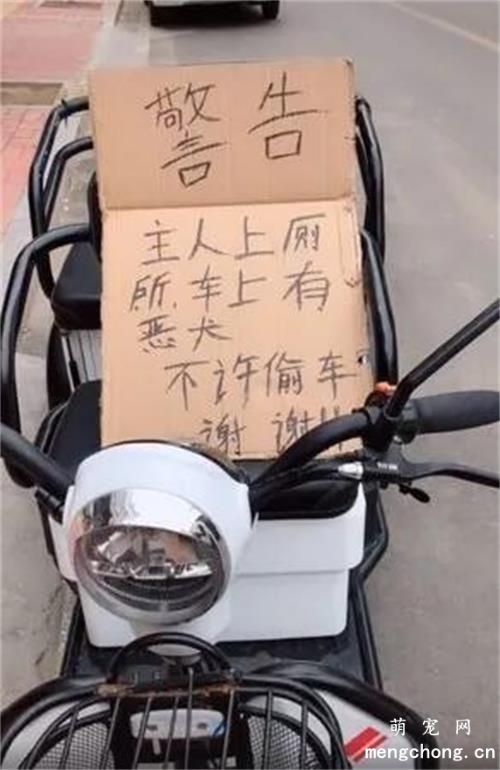 警告
主人上厕
所,车上有
恶犬
不许偷车
谢谢!!
萌宠网
mengchong.cn